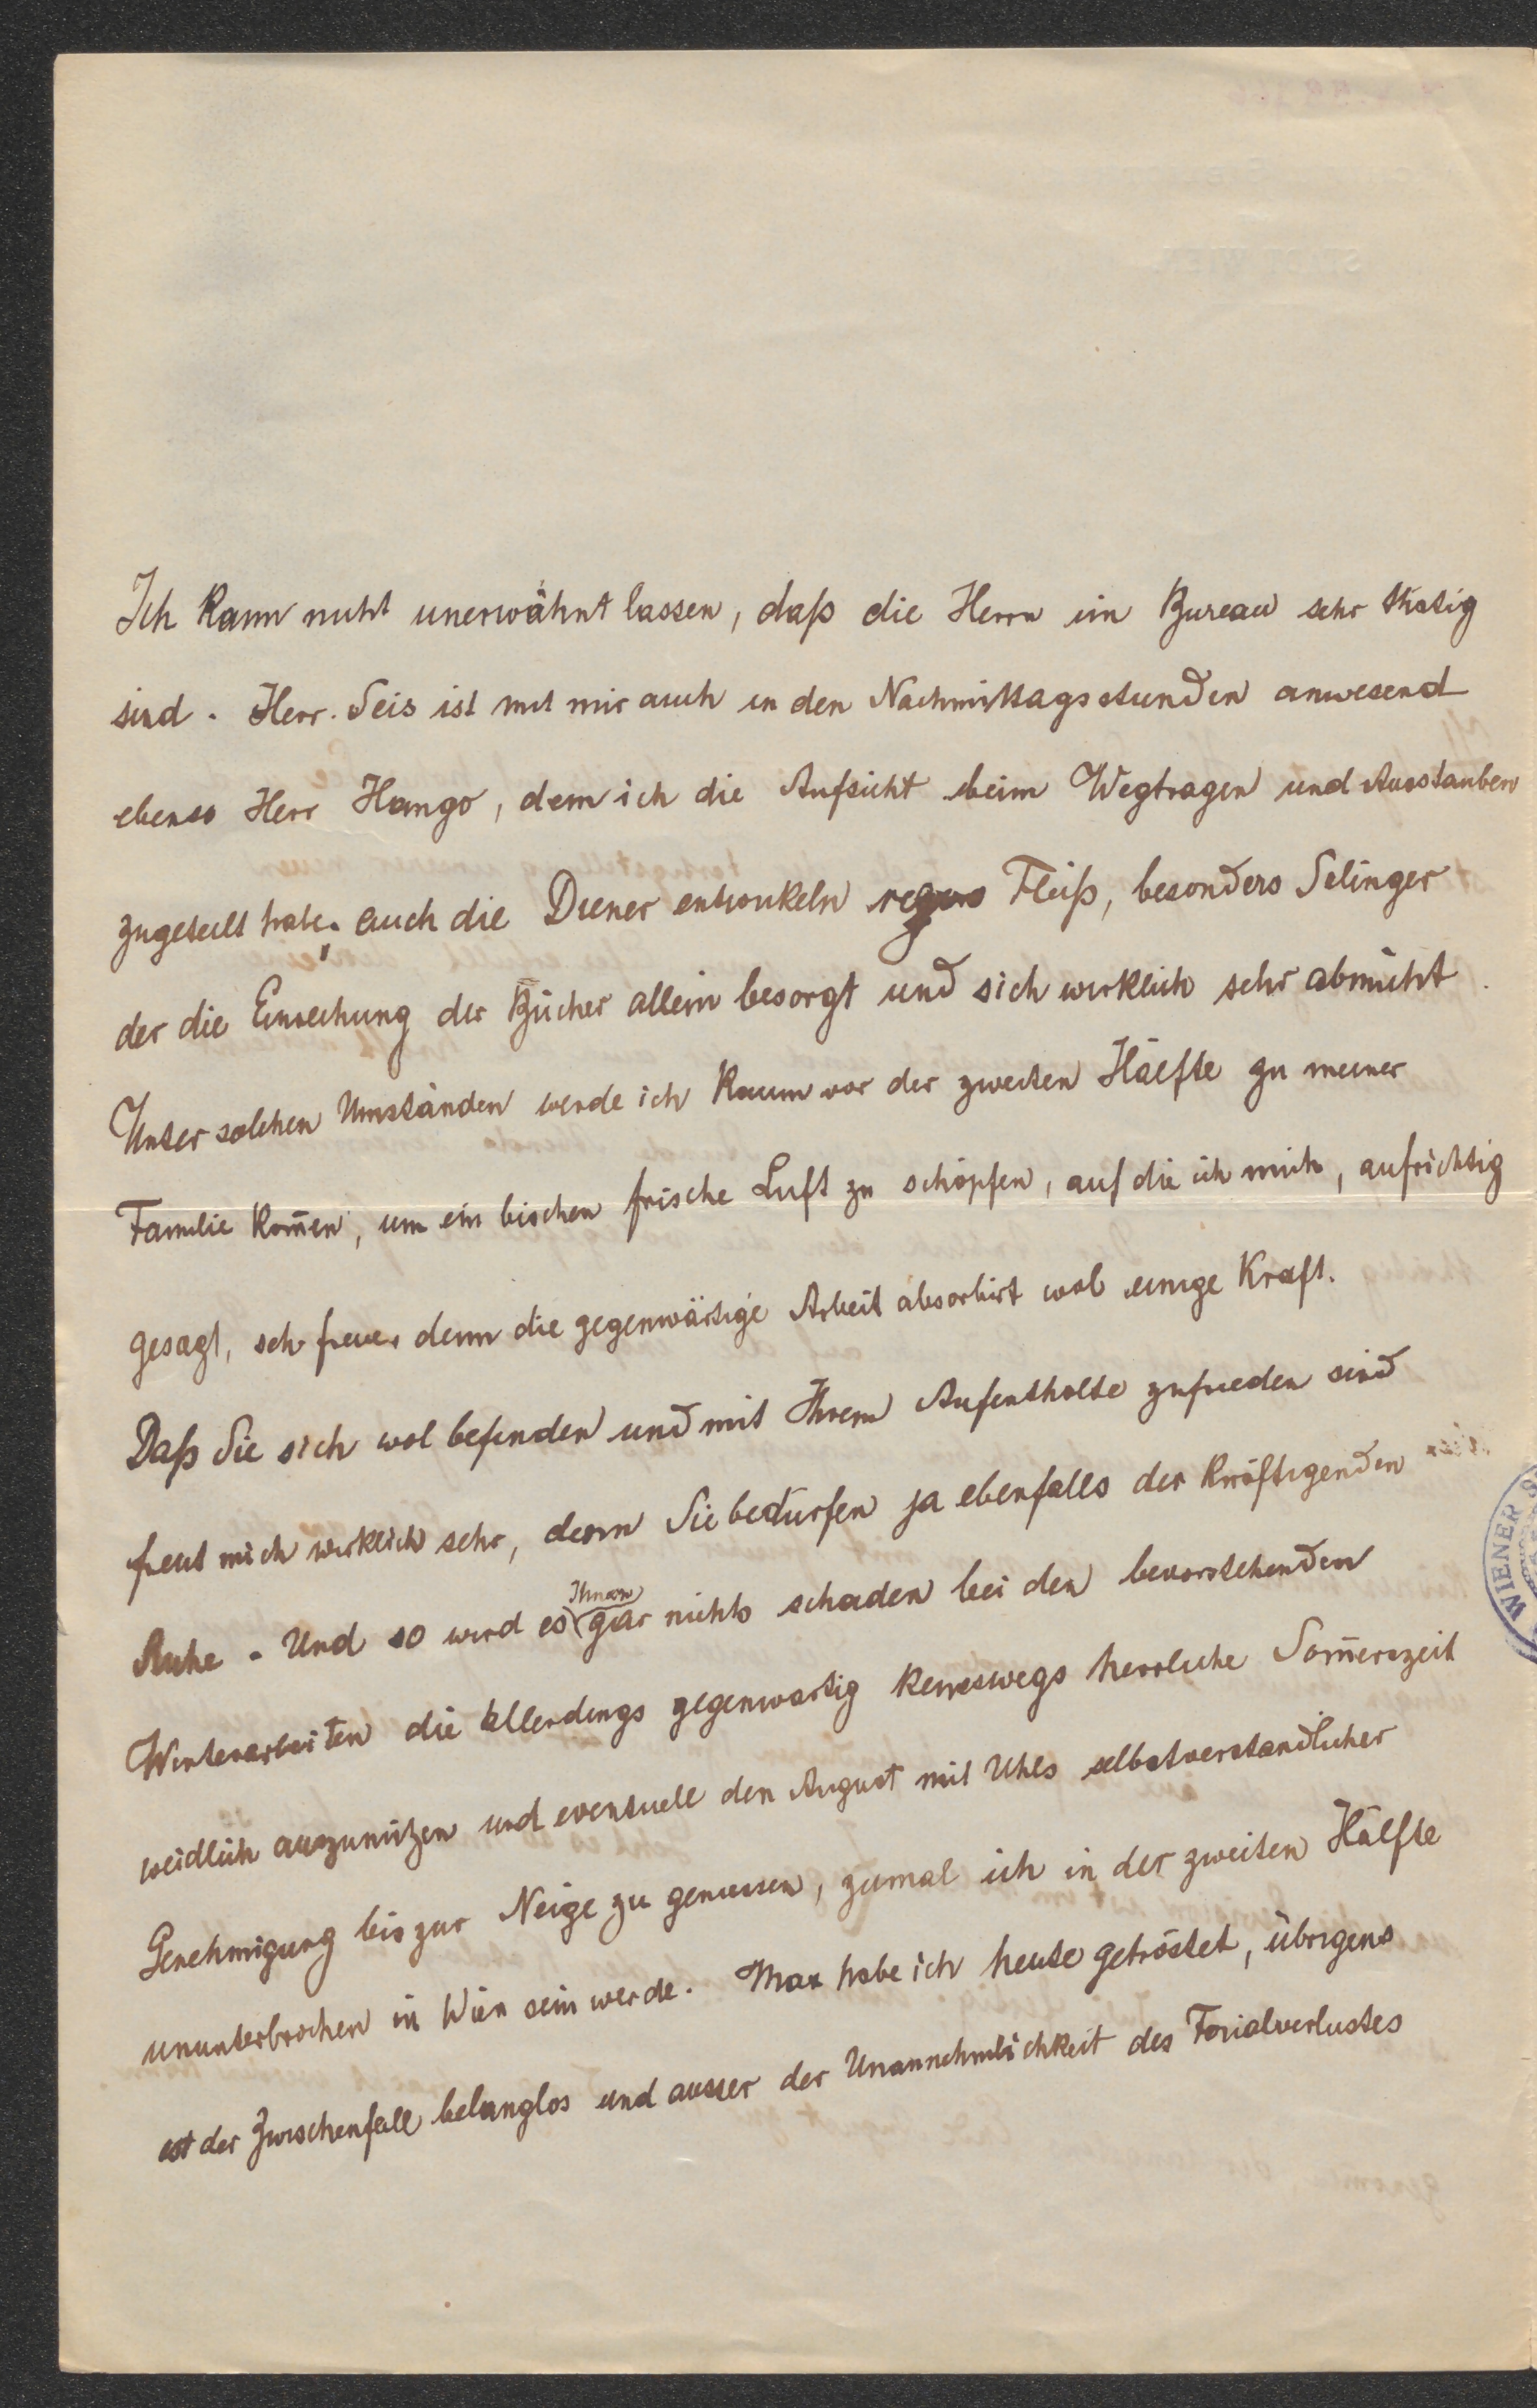 Ich kann nicht unerwähnt lassen, daß die Herrn im Bureau sehr thätig
sind. Herr Seis ist mit mir auch in den Nachmittagsstunden anwesend
ebenso Herr Hango, dem ich die Aufsicht beim Wegtragen und Ausstauben
zugeteilt habe. auch die Diener entwickeln regen Fleiß, besonders Selinger
der die Einreihung der Bücher allein besorgt und sich wirklich sehr abmüht.
Unter solchen Umständen werde ich kaum vor der zweiten Hälfte zu meiner
Familie kom̄en, um ein bischen frische Luft zu schöpfen, auf die ich mich, aufrichtig
gesagt, seh freue, denn die gegenwärtige Arbeit absorbirt wol einige Kraft.
Daß Sie sich wol befinden und mit Ihrem Aufenthalte zufrieden sind
freut mich wirklich sehr, denn Sie bedürfen ja ebenfalls der kräftigenden
Ruhe. Und so wird es Ihnen gar nichts schaden bei den bevorstehenden
Winterarbeiten die allerdings gegenwärtig keineswegs herrliche Som̄erszeit
weidlich auszunützen und eventuell den August mit Uhls selbstverständlicher
Genehmigung bis zur Neige zu geniessen, zumal ich in der zweiten Hälfte
ununterbrochen in Wien sein werde. Max habe ich heute getröstet, übrigens
ist der Zwischenfall belanglos und ausser der Unannehmlichkeit des Ferialverlustes
WIENER